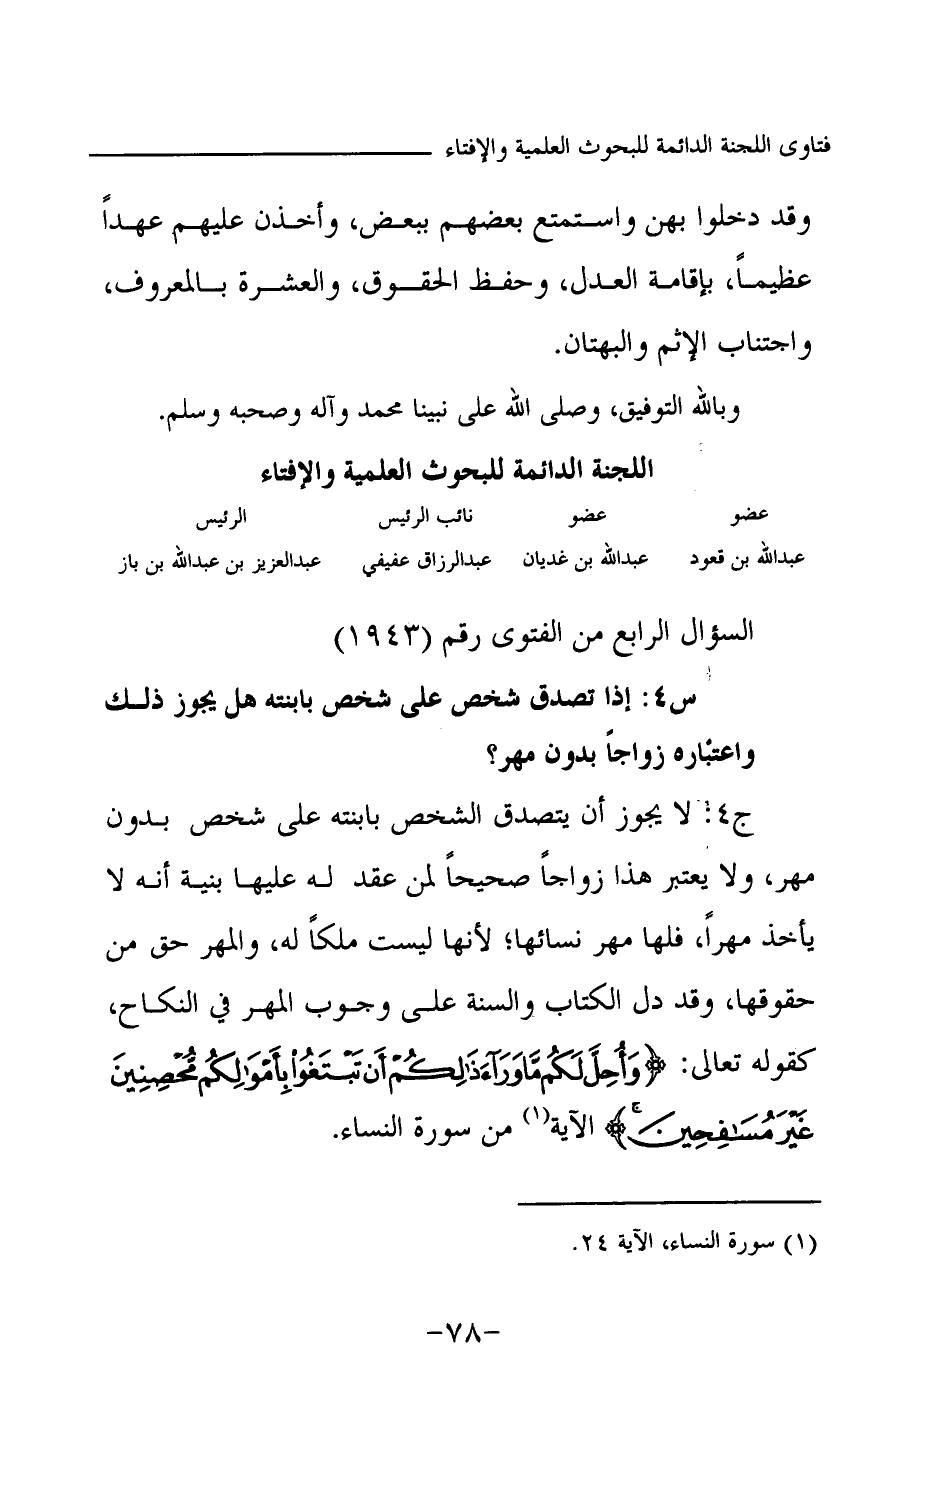 فتاوى اللجنة الدائمة للبحوث العلمية والإفتاء
وقد دخلوا بهن واستمتع بعضهم ببعض، وأخذن عليهم عهداً
عظيماً، بإقامة العدل، وحفظ الحقوق، والعشرة بالمعروف،
واجتناب الإثم والبهتان.
وبالله التوفيق، وصلى الله على نبينا محمد وآله وصحبه وسلم.
اللجنة الدائمة للبحوث العلمية والإفتاء
عضو عضو نائب الرئيس الرئيس
عبدالله بن قعود عبدالله بن غديان عبدالرزاق عفيفي عبدالعزيز بن عبدالله بن باز
السؤال الرابع من الفتوى رقم (١٩٤٣)
س٤: إذا تصدق شخص على شخص بابنته هل يجوز ذلك
واعتباره زواجاً بدون مهر؟
ج٤: لا يجوز أن يتصدق الشخص بابنته على شخص بدون
مهر، ولا يعتبر هذا زواجاً صحيحاً لمن عقد له عليها بنية أنه لا
يأخذ مهراً، فلها مهر نسائها؛ لأنها ليست ملكاً له، والمهر حق من
حقوقها، وقد دل الكتاب والسنة على وجوب المهر في النكاح،
كقوله تعالى: ﴿وَأُحِلَّ لَكُم مَّا وَرَآءَ ذَٰلِكُمْ أَن تَبْتَغُوا۟ بِأَمْوَٰلِكُم مُّحْصِنِينَ
غَيْرَ مُسَٰفِحِينَ ۚ﴾ الآية(١) من سورة النساء.
(١) سورة النساء، الآية ٢٤.
-٧٨-